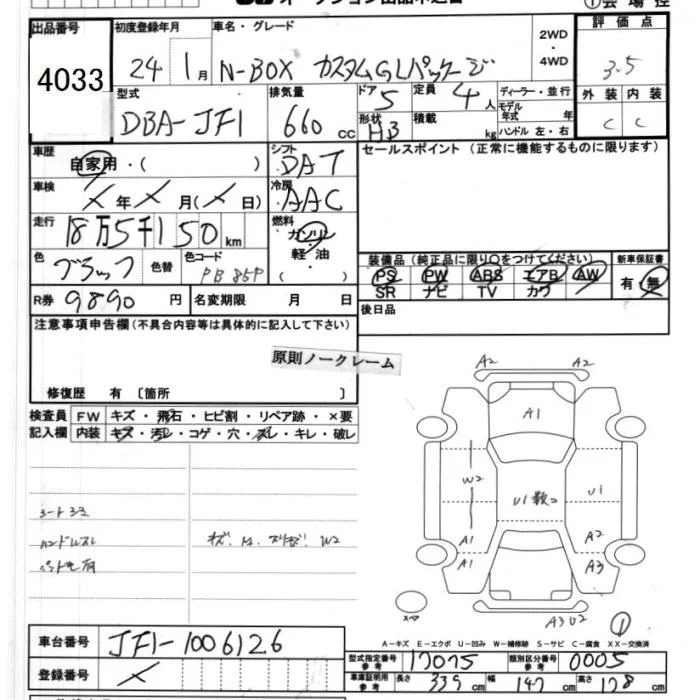 出品番号 4033
初度登録年月 24 1月
車名・グレード N-BOX カスタムGLパッケージ
2WD・4WD
評価点 3.5
型式 DBA-JF1
排気量 660 cc
ドア 5 形状 HB
定員 4人 積載 kg
ディーラー・並行
モデル年式 年
ハンドル 左・右
外装 内装
C C
車歴 自家用・( )
シフト DAT
セールスポイント (正常に機能するものに限ります)
車検 X年X月(X日)
冷房 AAC
走行 18万5千150km
燃料 ガソリン・軽油 ( )
色 ブラック 色替 色コード PB85P
装備品 (純正品に限り○をつけてください) 新車保証書
PS PW ABS エアB AW 有・無
SR ナビ TV カワ
R券 9890円 名変期限 月 日
後日品
注意事項申告欄(不具合内容等は具体的に記入して下さい)
原則ノークレーム
修復歴 有 〔箇所 〕
検査員 FW キズ・飛石・ヒビ割・リペア跡・×要
記入欄 内装 キズ・汚レ・コゲ・穴・スレ・キレ・破レ
A2 A2
A1
W2 U1数コ U1
A1 A2
A1 A3
スペア
A3U2
①
シートシミ
ハンドルスレ
A-キズ E-エクボ U-凹み W-補修跡 S-サビ C-腐食 XX-交換済
車台番号 JF1-1006126
型式指定番号 参考 17075 類別区分番号 参考 0005
登録番号 X
車庫証明用 参考 長さ 339cm 幅 147cm 高さ 178cm